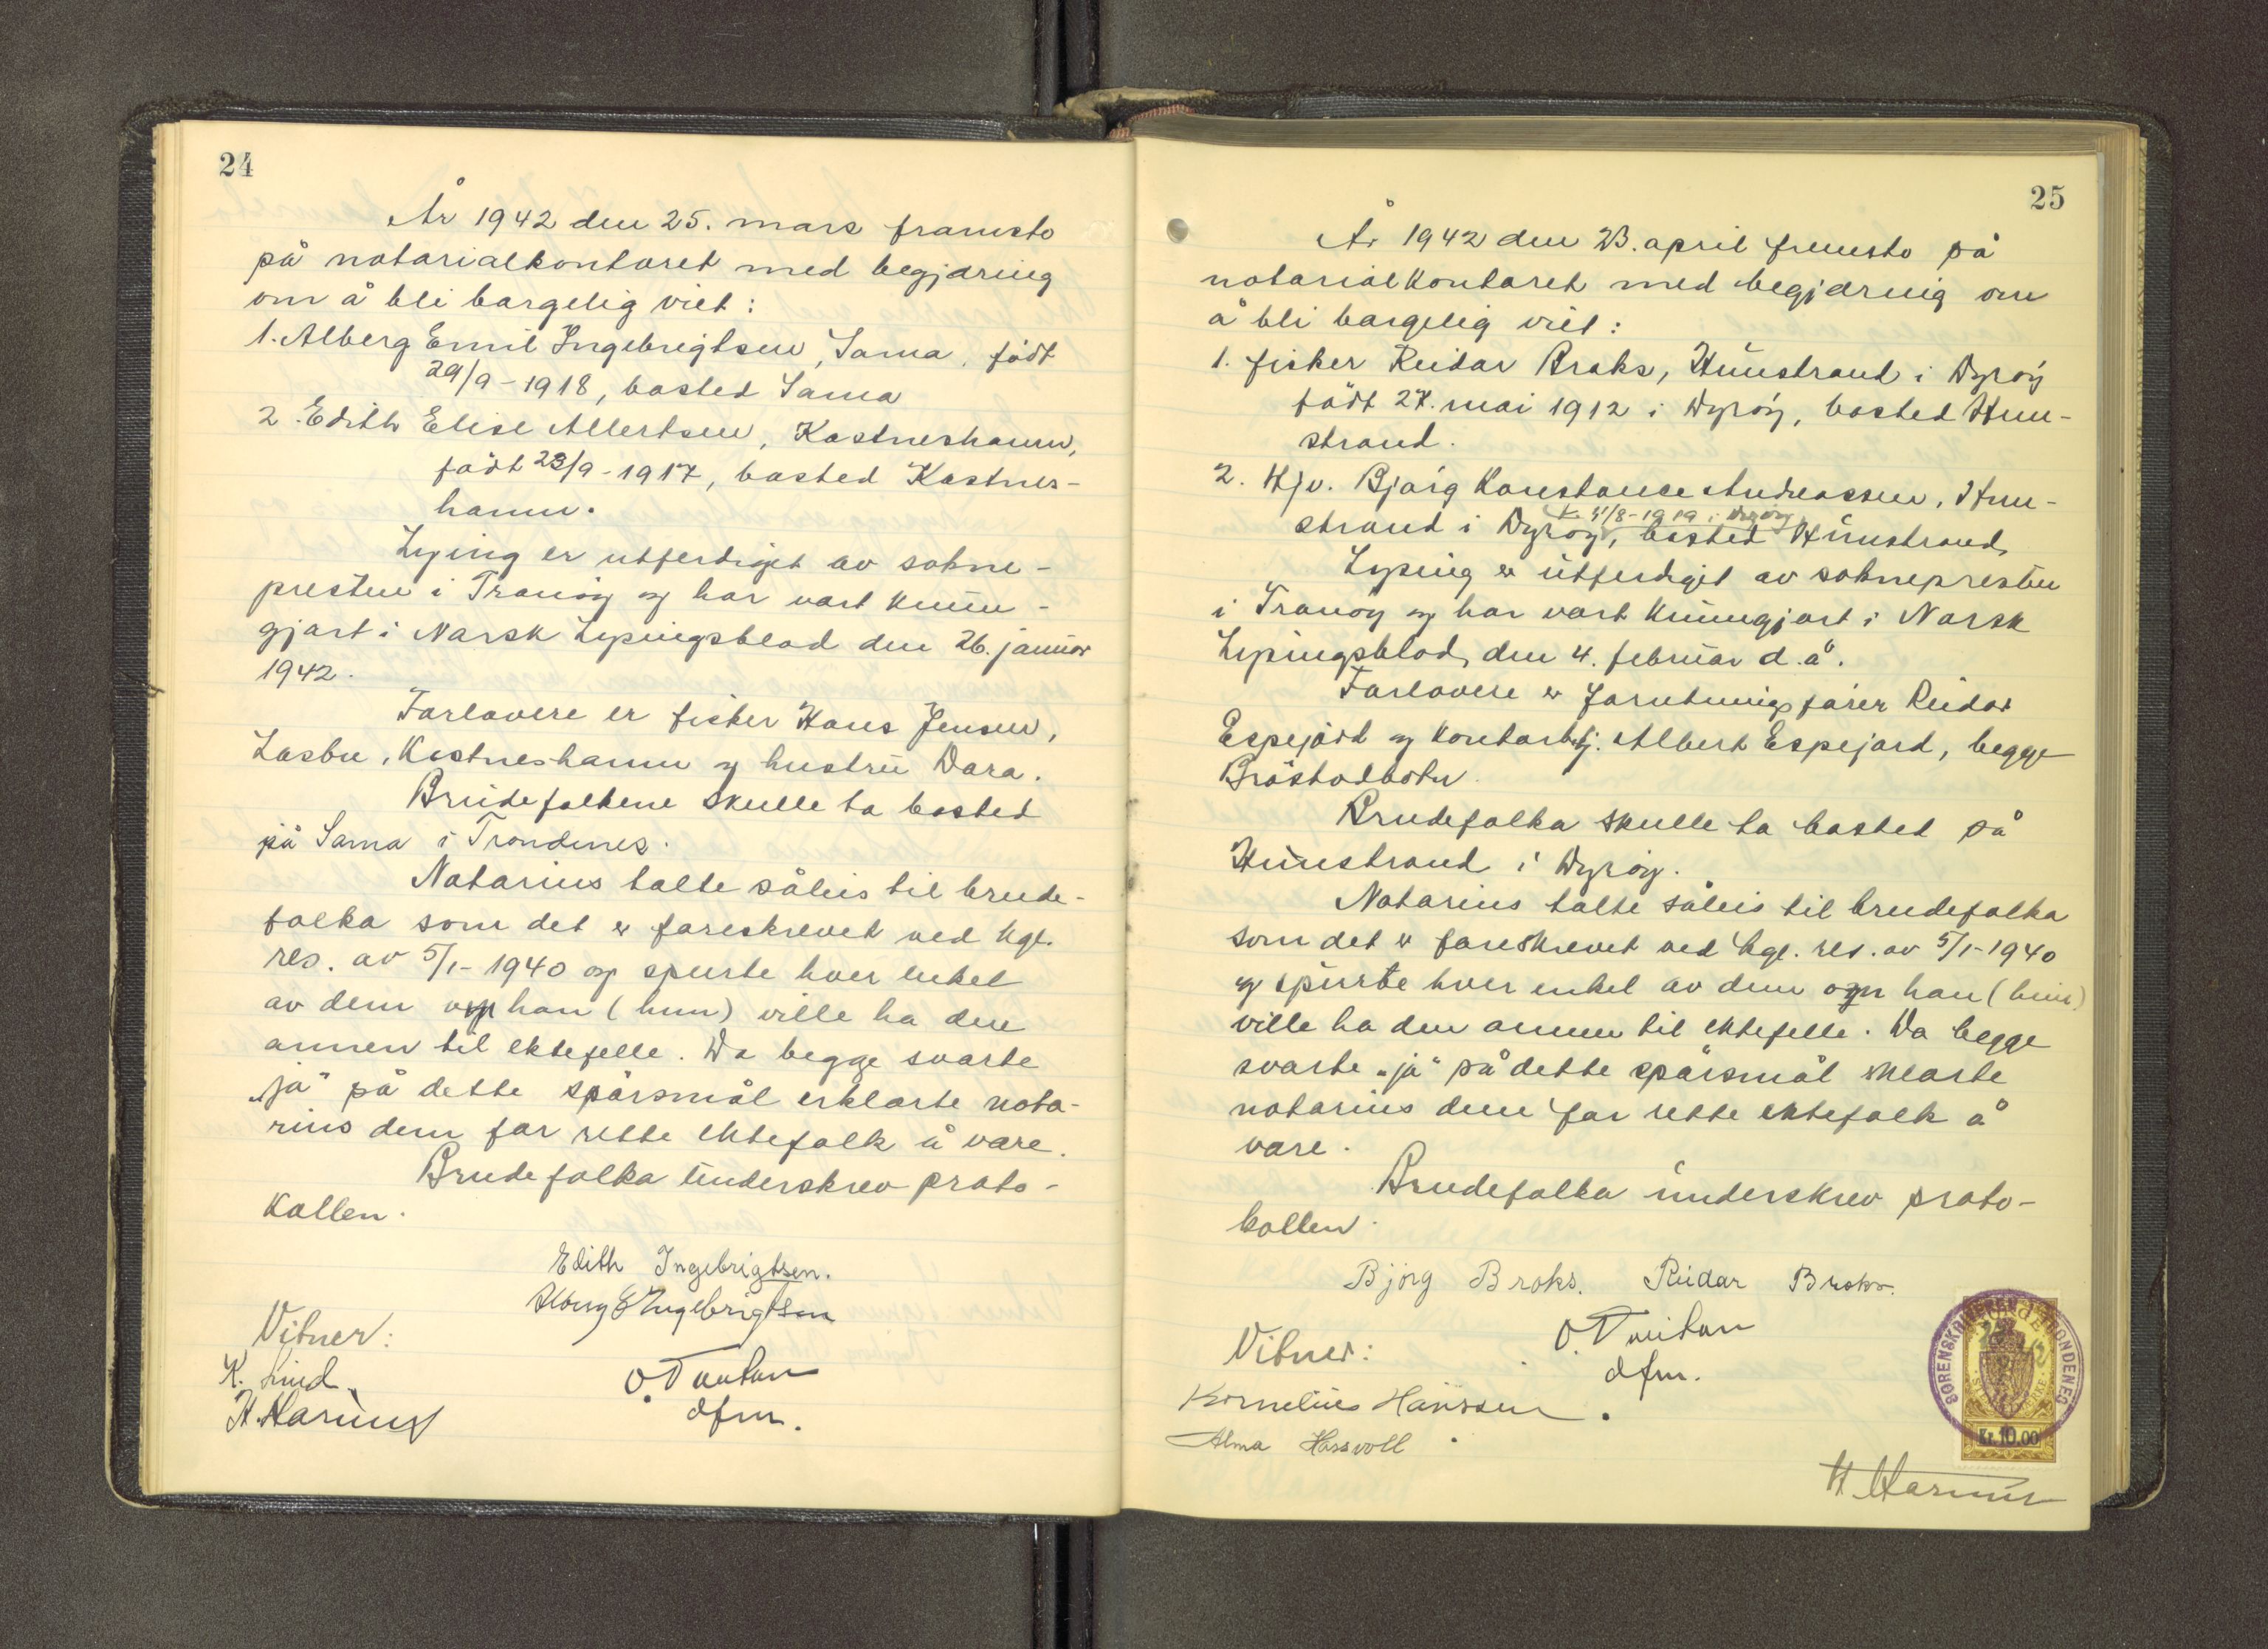 24
År 1942 den 25. mars framsto
på notarialkontoret med begjæring
om å bli borgelig viet:
1. Alberg Emil Ingebrigtsen, Sama, født
29/9-1918, bosted Sama
2. Edith Elise Albertsen, Kastneshamn,
født 23/9-1917, bosted Kastnes-
hamn.
Lysing er utferdiget av sokne-
presten i Tranøy og har vært kunn-
gjort i Norsk Lysingsblad den 26. januar
1942.
Forlovere er fisker Hans Jensen,
Kastneshamn og hustru Dora.
Brudefolkene skulle ta bosted
på Sama i Trondenes.
Notarius talte såleis til brude-
folka som det er foreskrevet ved kgl.
res. av 5/1-1940 og spurte hver enkel
av dem om han (hun) ville ha den
annen til ektefelle. Da begge svarte
„ja" på dette spørsmål erklærte nota-
rius dem for rette ektefolk å være.
Brudefolka underskrev proto-
kollen.
Edith Ingebrigtsen.
Alberg E Ingebrigtsen
Vitner:
K. Lind.
dfm.
25
År 1942 den 23. april fremsto på
notarialkontoret med begjæring om
å bli borgelig viet:
1. fisker Reidar Broks, Hunstrand i Dyrøy
født 27. mai 1912 i Dyrøy, bosted Hun-
strand.
2. Hjv. Bjørg Konstance Andreassen, Hun-
strand i Dyrøy, bosted Hunstrand,
Lysing er utferdiget av soknepresten
i Tranøy og har vært kunngjort i Norsk
Lysingsblad, den 4. februar d.å.
Forlovere er forretningsfører Reidar
Espejord og kontorbetj. Albert Espejord, begge
Brøstadbotn.
Brudefolka skulle ta bosted på
Hunstrand i Dyrøy.
Notarius talte såleis til brudefolka
som det er foreskrevet ved kgl. res. av 5/1-1940
og spurte hver enkel av dem om han (hun)
ville ha den annen til ektefelle. Da begge
svarte „ja" på dette spørsmål erklærte
notarius dem for rette ektefolk å
være.
Brudefolka underskrev proto-
kollen.
Bjørg Broks. Reidar Broks.
Vitner:
dfm.
Kornelius Hanssen.
Alma Hassvoll
SORENSKRIVEREN I TRONDENES
Kr. 10.00